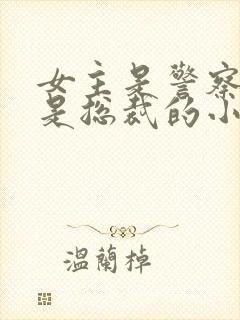 女主是警察
是总裁的小
温蘭掉